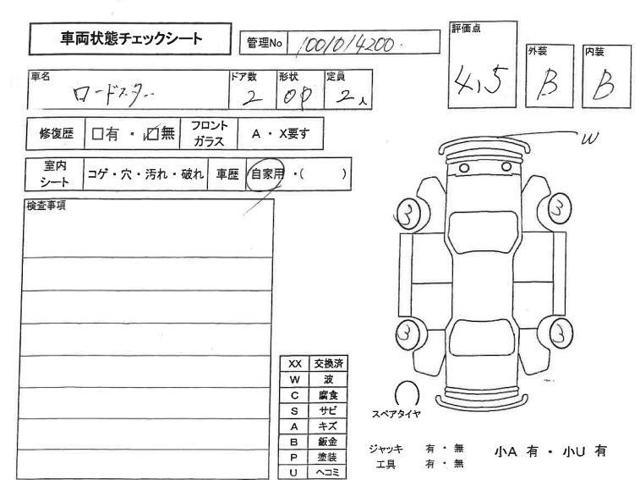 車両状態チェックシート
管理No 1001014200
評価点 4,5
外装 B
内装 B
車名 ロードスター
ドア数 2
形状 OP
定員 2人
修復歴 □有・☑無
フロントガラス A・X要す
室内シート コゲ・穴・汚れ・破れ
車歴 自家用・( )
検査事項
W
3 3
3 3
XX 交換済
W 波
C 腐食
S サビ
A キズ
B 鈑金
P 塗装
U ヘコミ
スペアタイヤ
ジャッキ 有・無
工具 有・無
小A 有・小U 有